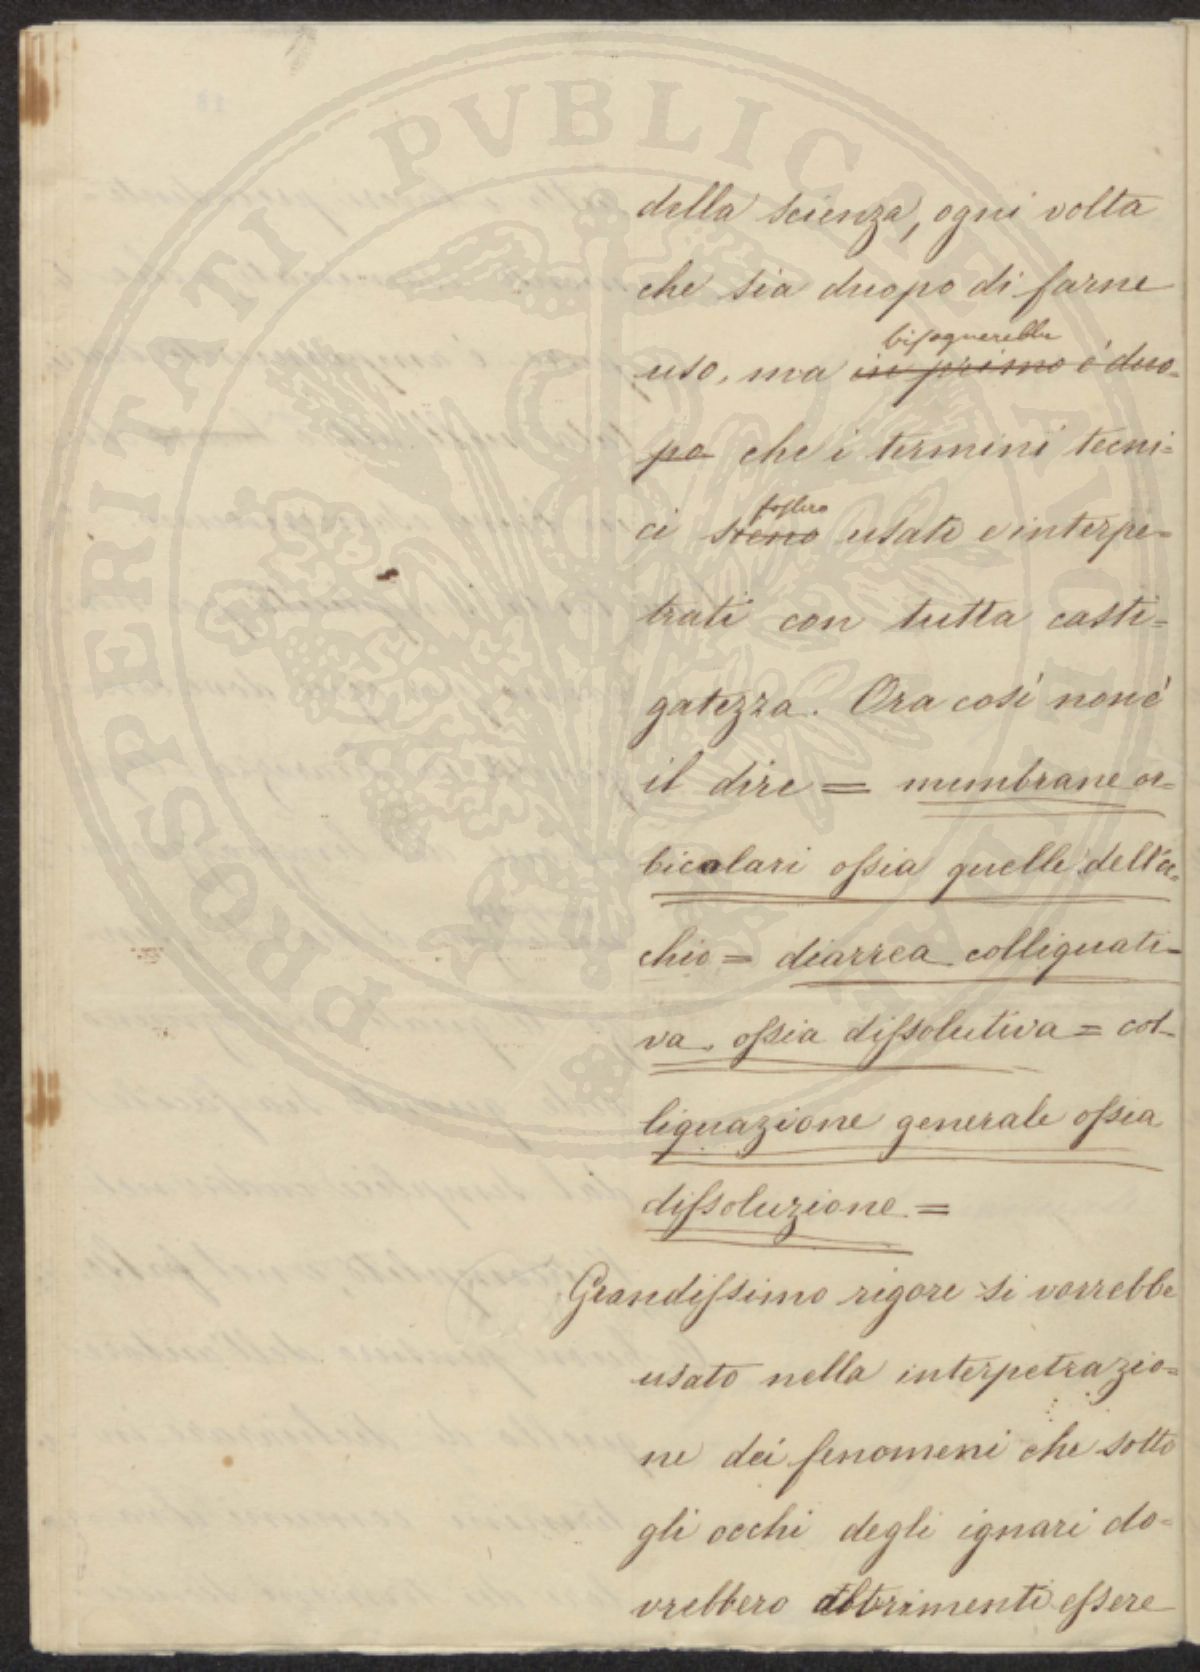 PROSPERITATI PVBLICAE AVGENDAE
della scienza, ogni volta
che sia duopo di farne
bisognerebbe
uso, ma in primo è duo-
po che i termini tecni-
fossero
ci sieno usati e interpe-
trati con tutta casti-
gatezza. Ora così non è
il dire = membrane or-
bicolari ossia quelle dell'o-
chio = diarrea colliquati-
va, ossia dissolutiva = col-
liquazione generale ossia
dissoluzione =
Grandissimo rigore si vorrebbe
usato nella interpetrazio-
ne dei fenomeni che sotto
gli occhi degli ignari do-
vrebbero altrimenti essere